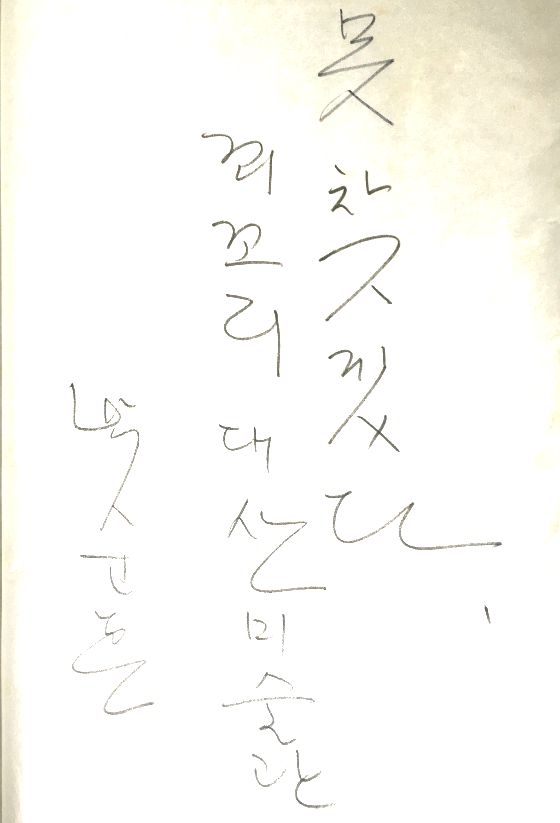 못 찾겠다.
꾀꼬리 대산미술관